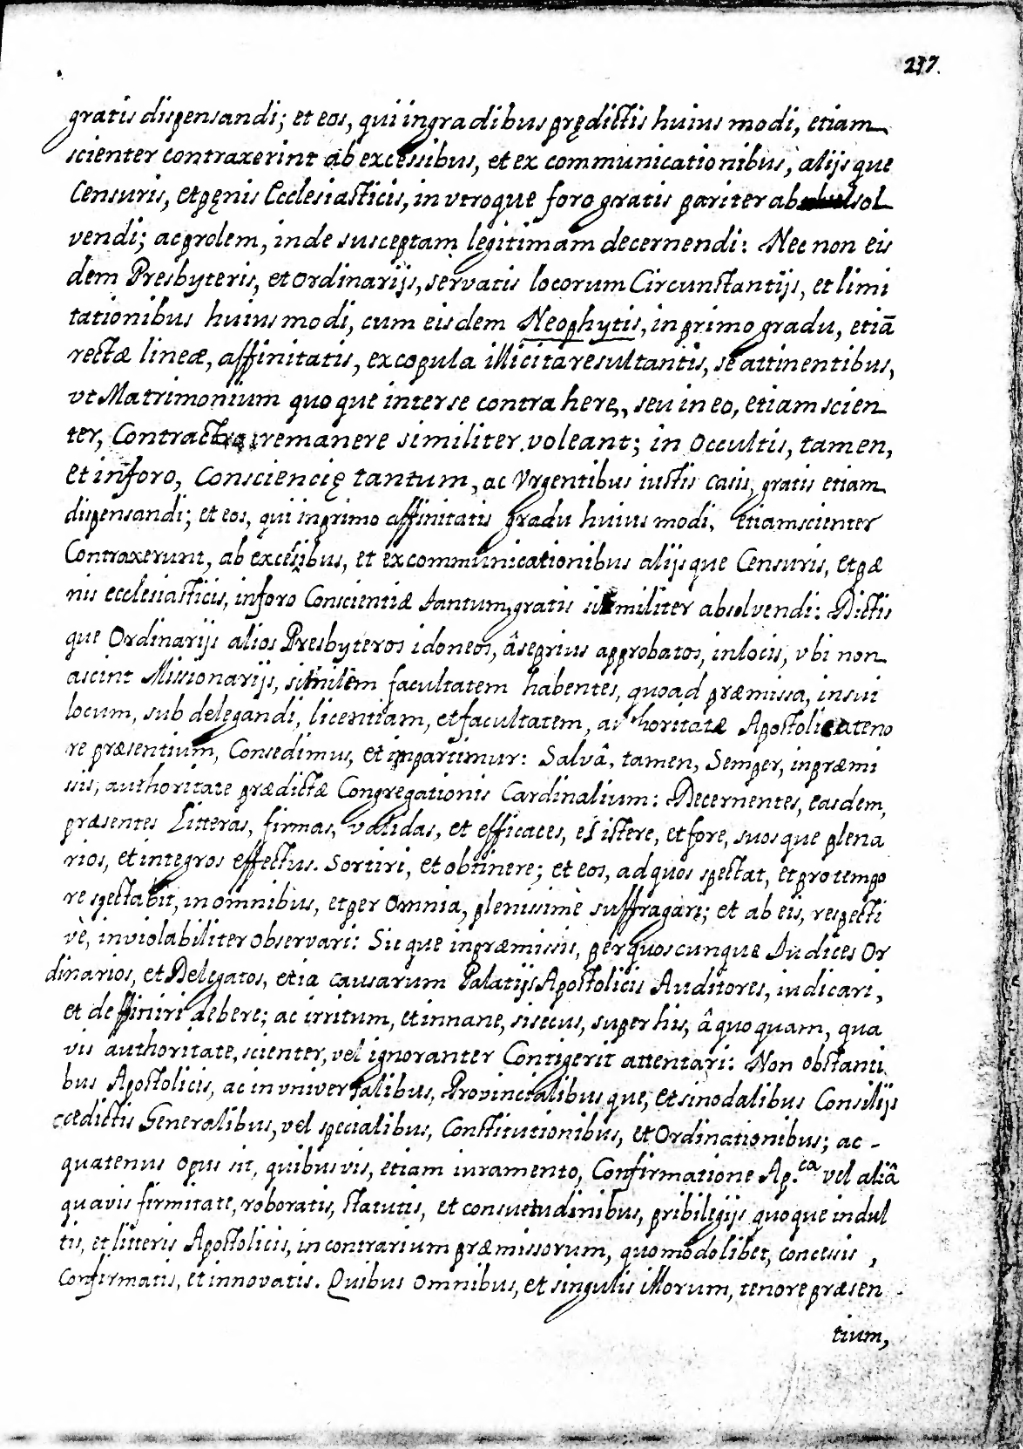 237.
gratis dispensandi; et eos, qui in gradibus prędictis huius modi, etiam
scienter contraxerint ab excessibus, et ex communicationibus, alijs que
Censuris, et pęnis Ecclesiasticis, in vtroque foro gratis pariter ab sol
vendi; ac prolem, inde susceptam legitimam decernendi: Nec non eis
dem Presbyteris, et Ordinarijs, servatis locorum Circunstantijs, et limi
tationibus huius modi, cum eisdem Neophytis, in primo gradu, etiā
rectæ lineæ, affinitatis, ex copula illicita resultantis, se attinentibus,
vt Matrimonium quo que inter se contra here, seu in eo, etiam scien
ter, Contracto, remanere similiter voleant; in Occultis, tamen,
et in foro, Consciencię tantum, ac Vrgentibus iustis casis, gratis etiam
dispensandi; et eos, qui in primo affinitatis gradu huius modi, etiam scienter
Contraxerunt, ab excessibus, et ex communicationibus alijs que Censuris, et pæ
nis ecclesiasticis, in foro Conscientiæ tantum, gratis similiter absolvendi: Dictis
que Ordinarijs alios Presbyteros idoneos, â se prius approbatos, in locis, vbi non
ascint Missionarijs, similem facultatem habentes, quoad præmissa, in sui
locum, sub delegandi, licentiam, et facultatem, authoritatæ Apostolica teno
re præsentium, Consedimus, et impartimur: Salvâ, tamen, Semper, in præmi
sis, authoritate prædictæ Congregationis Cardinalium: Decernentes, easdem,
præsentes Litteras, firmas, validas, et efficaces, existere, et fore, suos que plena
rios, et integros effectus. Sortiri, et obtinere; et eos, ad quos spectat, et pro tempo
re spectabit, in omnibus, et per Omnia, plenissimè suffragari; et ab eis, respecti
vè, inviolabiliter observari: Sic que in præmissis, per quoscunque Iudices Or
dinarios, et Delegatos, etia causarum Palatijs Apostolicis Auditores, iudicari,
et deffiniri debere; ac irritum, et innane, si secus, super his, â quo quam, qua
vis authoritate, scienter, vel ignoranter Contigerit attentari: Non obstanti
bus Apostolicis, ac in vniversalibus, Provincialibus que, et sinodalibus Consilijs
ædictis Generalibus, vel specialibus, Constitutionibus, et Ordinationibus; ac -
quatenus Opus sit, quibus vis, etiam iuramento, Confirmatione Ap.ca vel aliâ
quavis firmitate, roboratis, statutis, et consuetudinibus, pribilegijs quoque indul
tis, et litteris Apostolicis, in contrarium præmissorum, quomodolibet, concessis ,
Confirmatis, et innovatis. Quibus Omnibus, et singulis illorum, tenore præsen
tium,